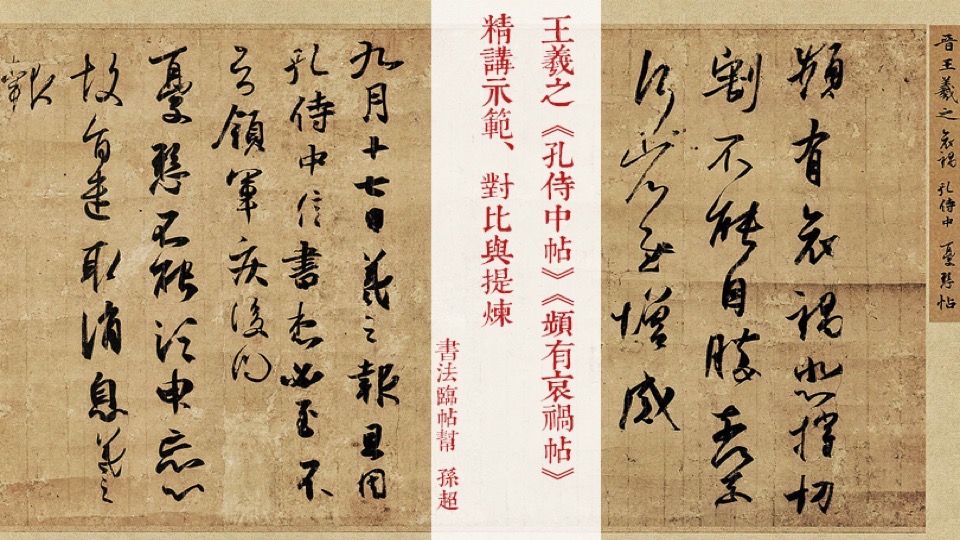 晉王羲之 哀禍 孔侍中 憂懸帖
頻有哀禍悲摧切
割不能自勝奈何
奈何省慰增感
王羲之《孔侍中帖》《頻有哀禍帖》
精講示範、對比與提煉
書法臨帖幫 孫超
九月十七日羲之報且因
孔侍中信書想必至不
知領軍疾後問
憂懸不能須臾忘心
故旨遣取消息羲之
報